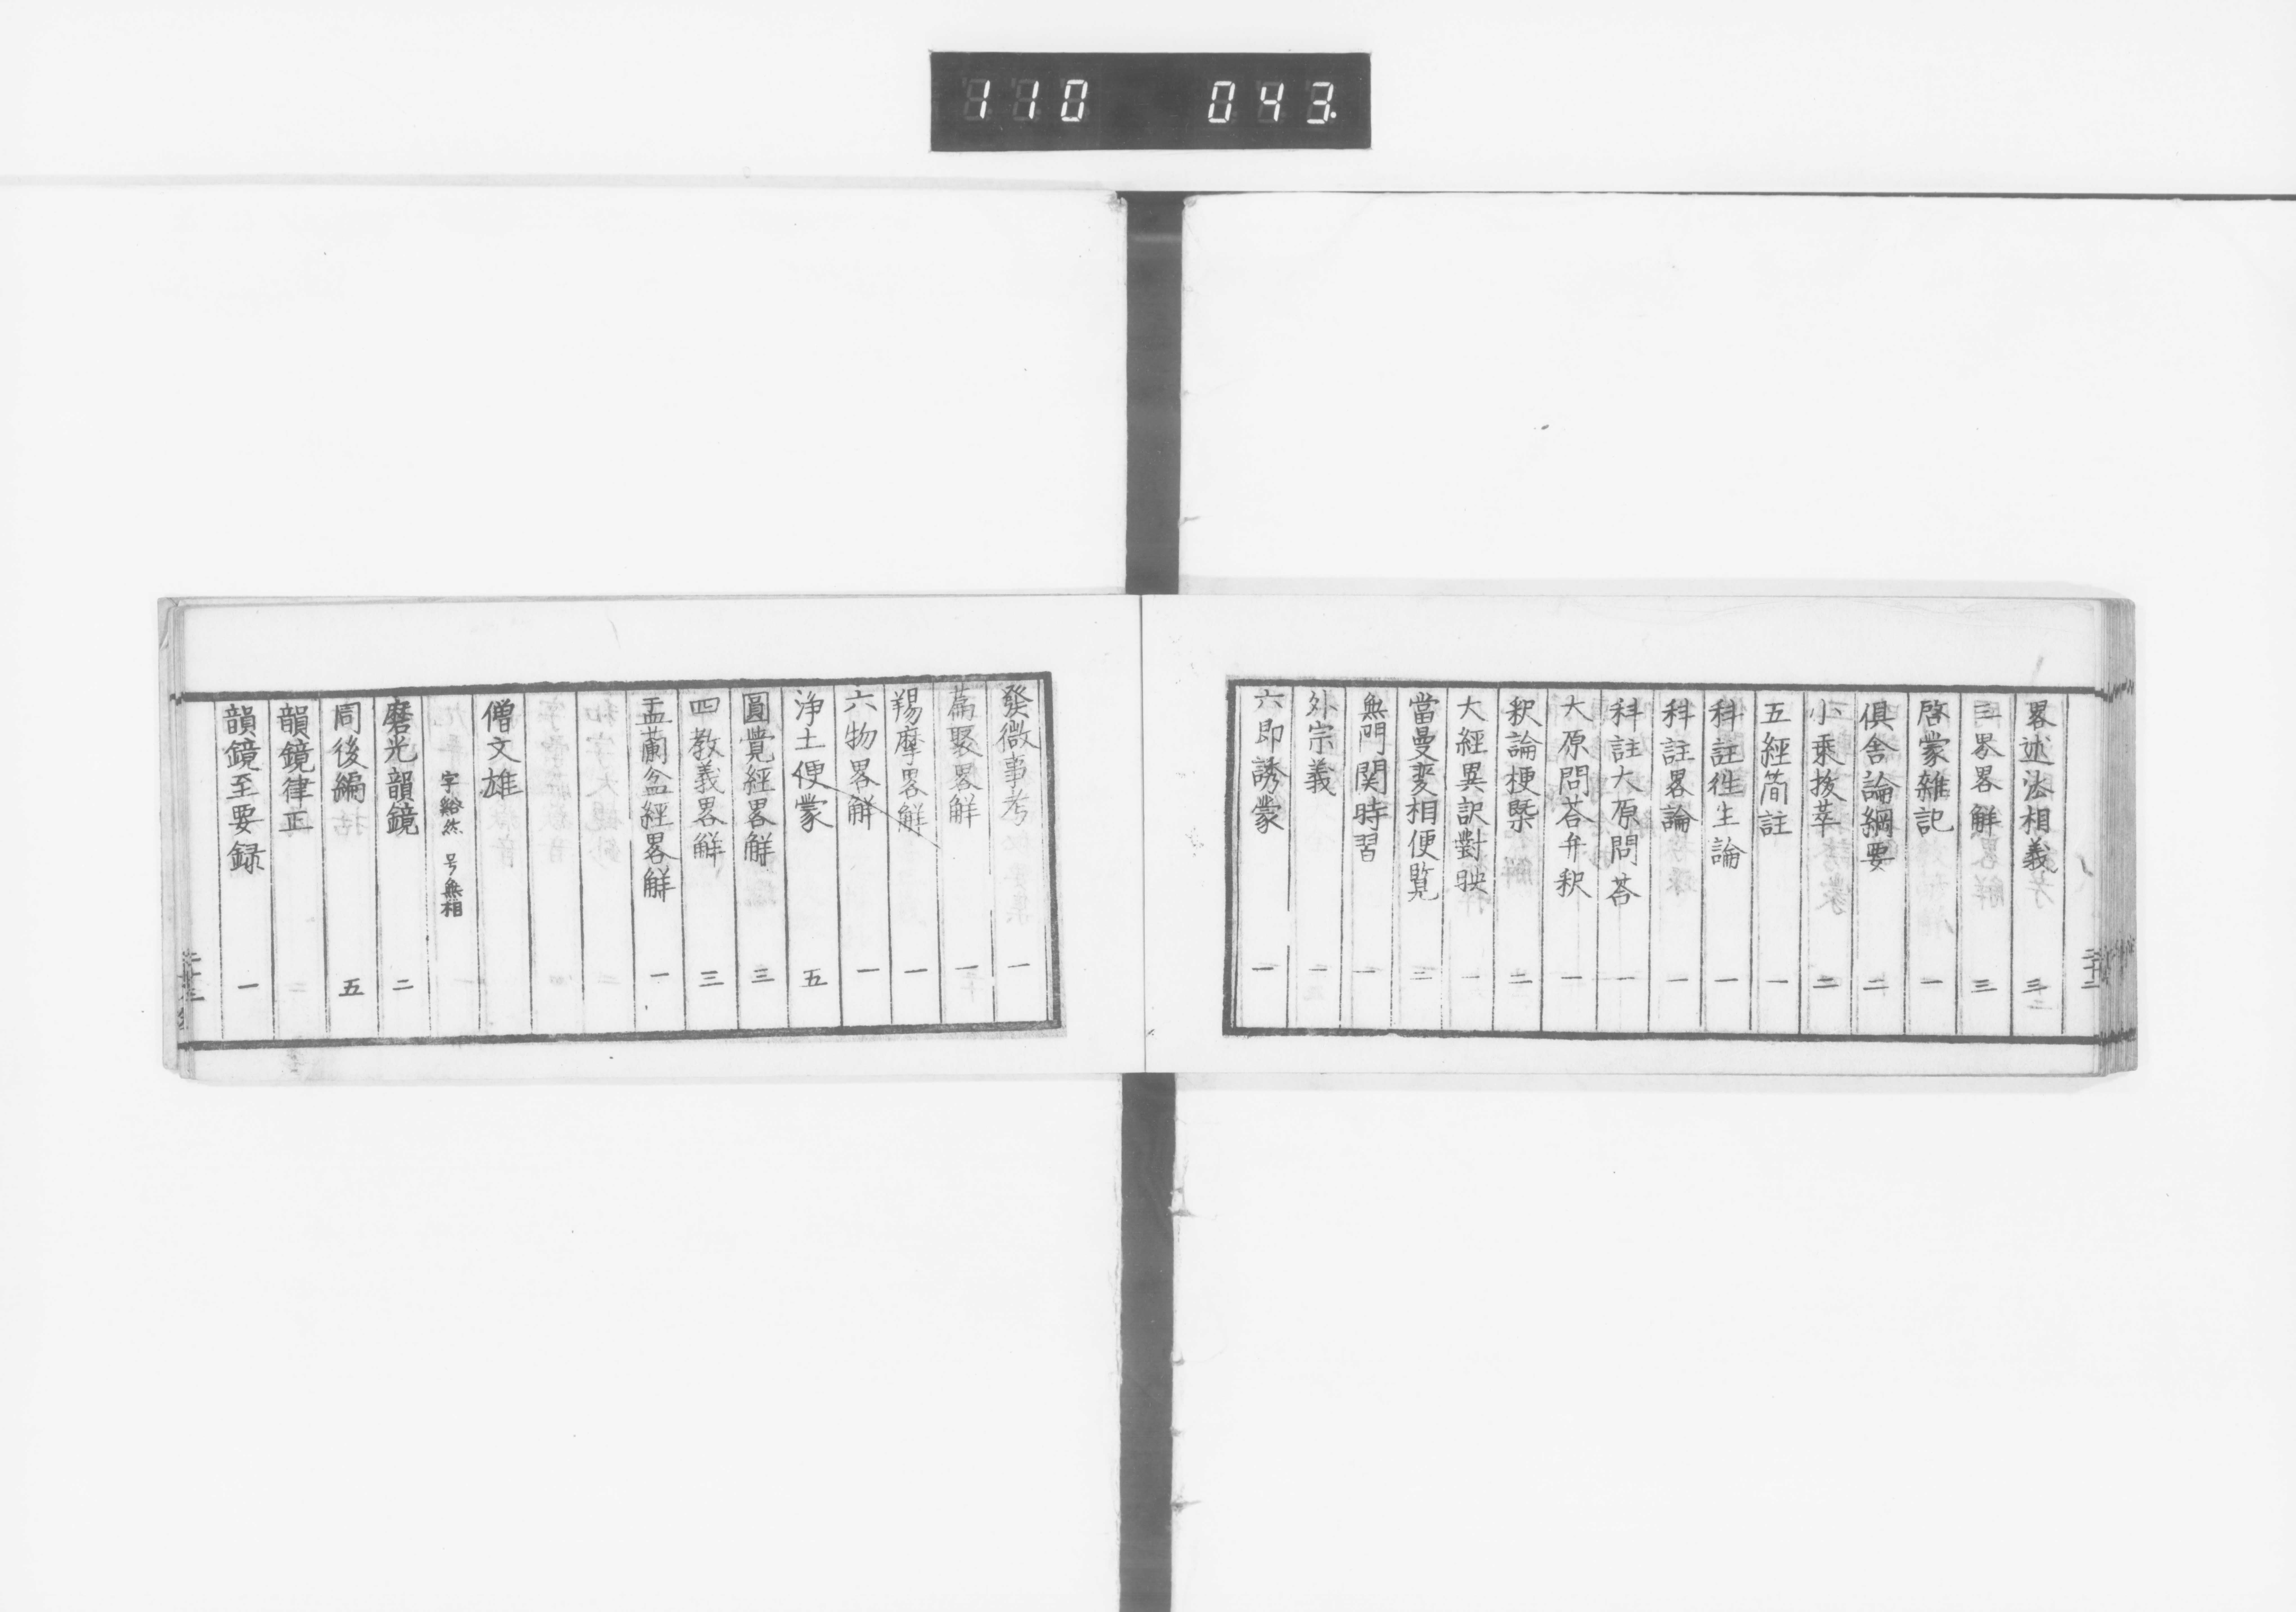 110 043
畧述法相義 三
三界畧解 三
啓蒙雜記 一
俱舎論綱要 二
小乗拔萃 二
五經简註 一
科註徃生論 一
科註畧論 一
科註大原問荅 一
大原問荅弁釈 一
釈論梗槩 二
大經異訳對映 一
當曼変相便覧 二
無門関時習 一
外宗義 一
六即誘蒙 一
發微事考 一
篇聚畧解 一
羯摩畧解 一
六物畧解 一
浄土便蒙 五
圓覺經畧解 三
四教義畧解 三
盂蘭盆經畧解 一
僧文雄
字谿然 号無相
磨光韻鏡 二
同後編 五
韻鏡律正 二
韻鏡至要録 一